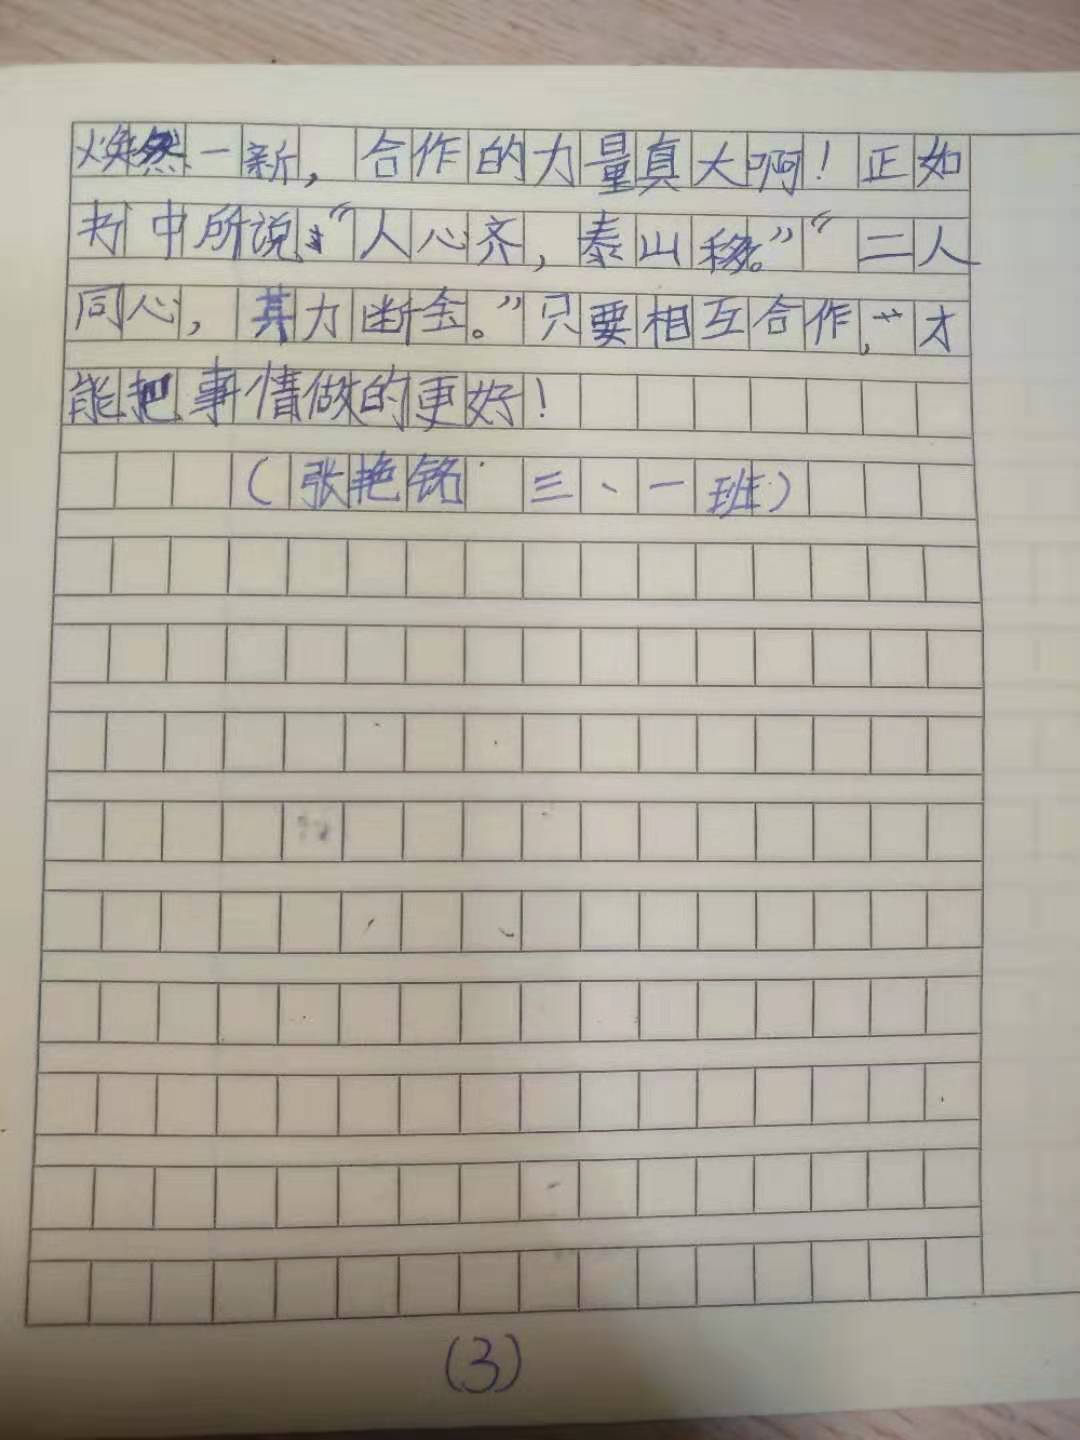 焕然一新，合作的力量真大啊！正如
书中所说：“人心齐，泰山移。”“二人
同心，其力断金。”只要相互合作，才
能把事情做的更好！
（张艳铭 三、一班）
(3)